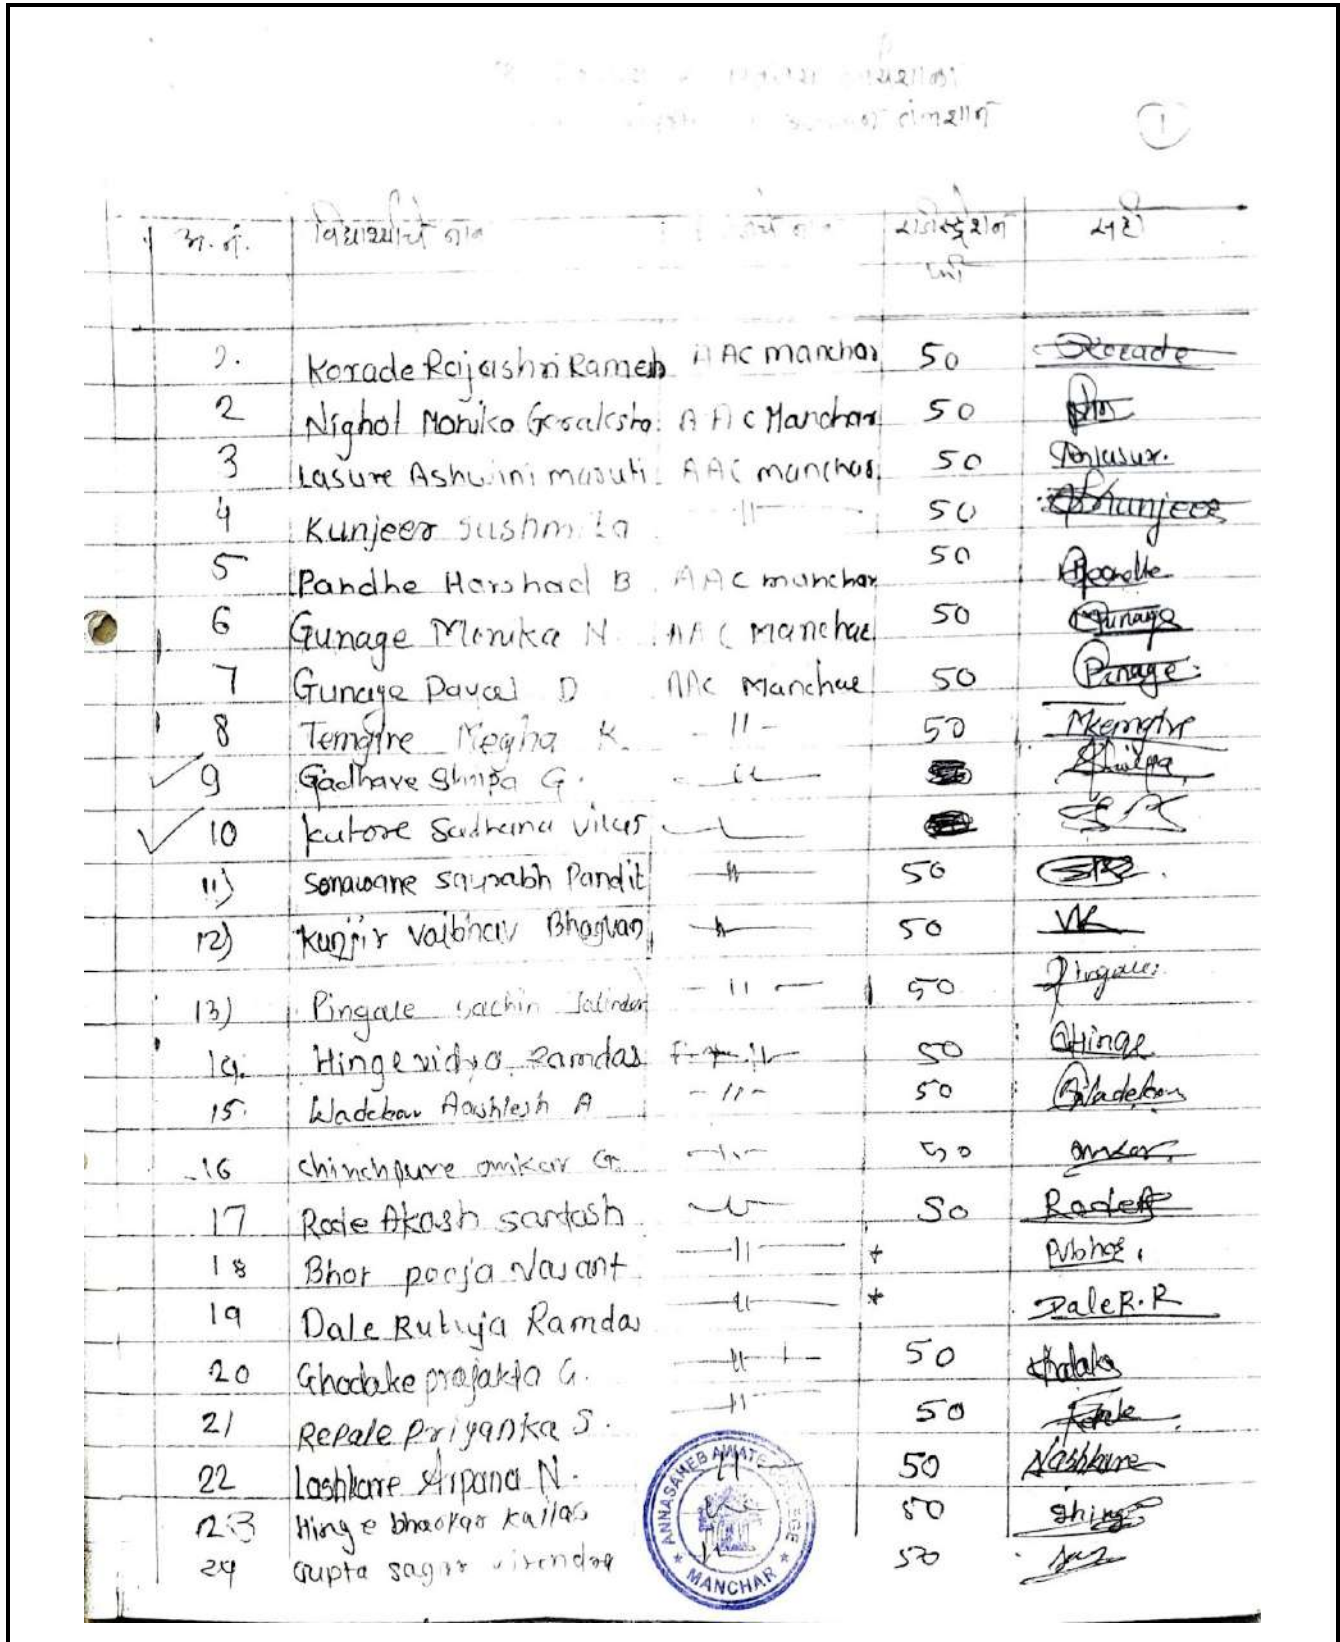 कार्यशाळा
①
अ.नं. विद्यार्थ्याचे नाव नाव रजीस्ट्रेशन सही
फी
१. Korade Rajashri Ramesh AAC manchar 50 Korade
2 Nighol Monika Goraksha. AAC Manchar 50
3 Lasure Ashwini maruti. AAC manchar 50 Amlasure.
4 Kunjeer Sushmita -11- 50 Skunjeer
5 Pandhe Harshad B. AAC manchar 50 Pandhe
6 Gunage Monika N. AAC Manchar 50 Gunage
7 Gunage Payal D AAC Manchar 50 Pgunage.
8 Temgire Megha K. -11- 50 Mkemgire
9 Gadhave Shilpa G. -11- Shilpa
10 kutore Sadhana vilas -11-
11) Sonawane saurabh Pandit -11- 50
12) Kunjir vaibhav Bhagvan -11- 50 VK
13) Pingale sachin Jalindar -11- 50 Pingale.
14. Hinge vidya Ramdas -11- 50 Hinge
15. Wadekar Aashlesh A -11- 50 Wadekar
16 chinchpure omkar G. -11- 50 omkar.
17 Rode Akash santosh -11- 50 RodeA
18 Bhor pooja Vasant -11- + Pvbhor.
19 Dale Rutuja Ramdas -11- + Dale R.R
20 Ghodake prajakta G. -11- 50
21 Repale Priyanka S. -11- 50 Repale
22 Lashkare Arpana N. -11- 50 Nashkare
23 Hinge bhaskar kailas -11- 50 Bhinge
24 Gupta sagar virendra -11- 50
ANNASAHEB AWATE COLLEGE
★ MANCHAR ★